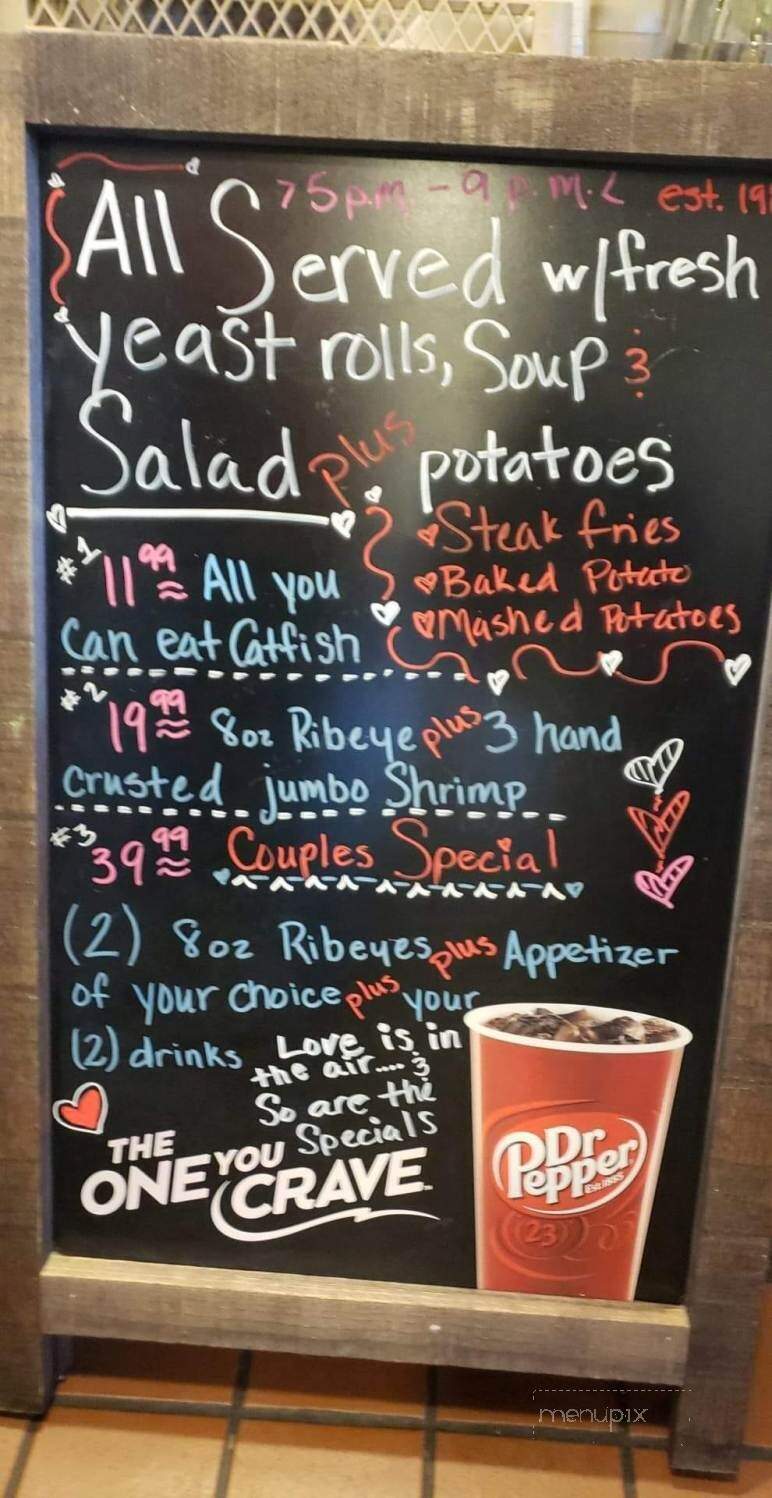 >5p.m. - 9 p.m.< est.
All Served w/fresh
yeast rolls, Soup &
Salad plus potatoes
Steak fries
Baked Potato
Mashed Potatoes
#1 11.99 All you
Can eat Catfish
#2 19.99 8oz Ribeye plus 3 hand
crusted jumbo Shrimp
#3 39.99 Couples Special
(2) 8oz Ribeyes plus Appetizer
of your choice plus your
(2) drinks
Love is in
the air.... &
So are the
Specials
THE
ONE YOU
CRAVE
Dr
Pepper
Est. 1885
23
menupix